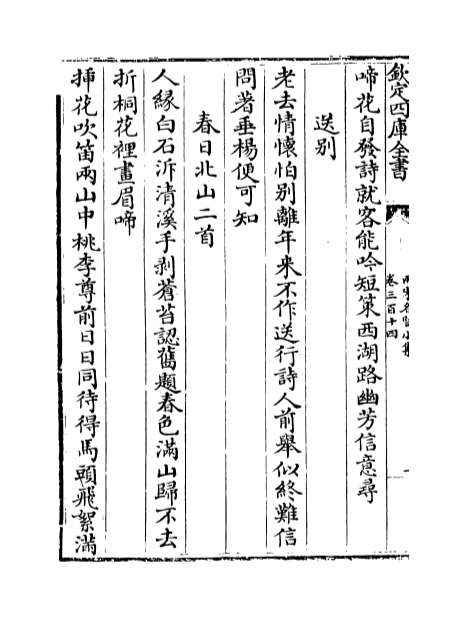 欽定四庫全書
卷三百十四
啼花自發詩就客能吟短策西湖路幽芳信意尋
送别
老去情懷怕别離年来不作送行詩人前舉似終難信
問著垂楊便可知
春日北山二首
人縁白石泝清溪手剥蒼苔認舊題春色滿山歸不去
折桐花裡畫眉啼
挿花吹笛兩山中桃李尊前日日同待得馬頭飛絮滿